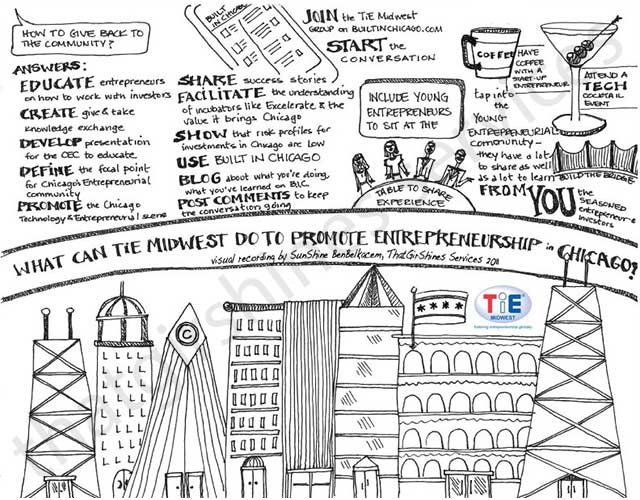 HOW TO GIVE BACK TO
THE COMMUNITY?
ANSWERS:
EDUCATE entrepreneurs
on how to work with investors
CREATE give & take
knowledge exchange
DEVELOP presentation
for the OEC to educate
DEFINE the focal point
for Chicago's Entrepreneurial
Community
PROMOTE the Chicago
Technology & Entrepreneurial scene
BUILT
IN CHICAGO
SHARE success stories
FACILITATE the understanding
of incubators like Excelerate & the
value it brings Chicago
SHOW that risk profiles for
investments in Chicago are low
USE BUILT IN CHICAGO
BLOG about what you're doing,
what you've learned on B.I.C.
POST COMMENTS to keep
the conversation going
JOIN the TiE Midwest
GROUP on BUILTINCHICAGO.COM
START the
CONVERSATION
INCLUDE YOUNG
ENTREPRENEURS
TO SIT AT THE
TABLE TO SHARE
EXPERIENCE
COFFEE
HAVE
COFFEE
WITH A
START-UP
ENTREPRENEUR
ATTEND A
TECH
COCKTAIL
EVENT
tap into
the
YOUNG
ENTREPRENEURIAL
community-
they have a lot
to share as well
as a lot to learn
BUILD THE BRIDGE
FROM YOU the
SEASONED
entrepreneur &
investors
WHAT CAN TiE MIDWEST DO TO PROMOTE ENTREPRENEURSHIP in CHICAGO?
visual recording by SunShine BenBelkacem, ThatGirlShines Services 2011
C
TiE
MIDWEST
fostering entrepreneurship globally